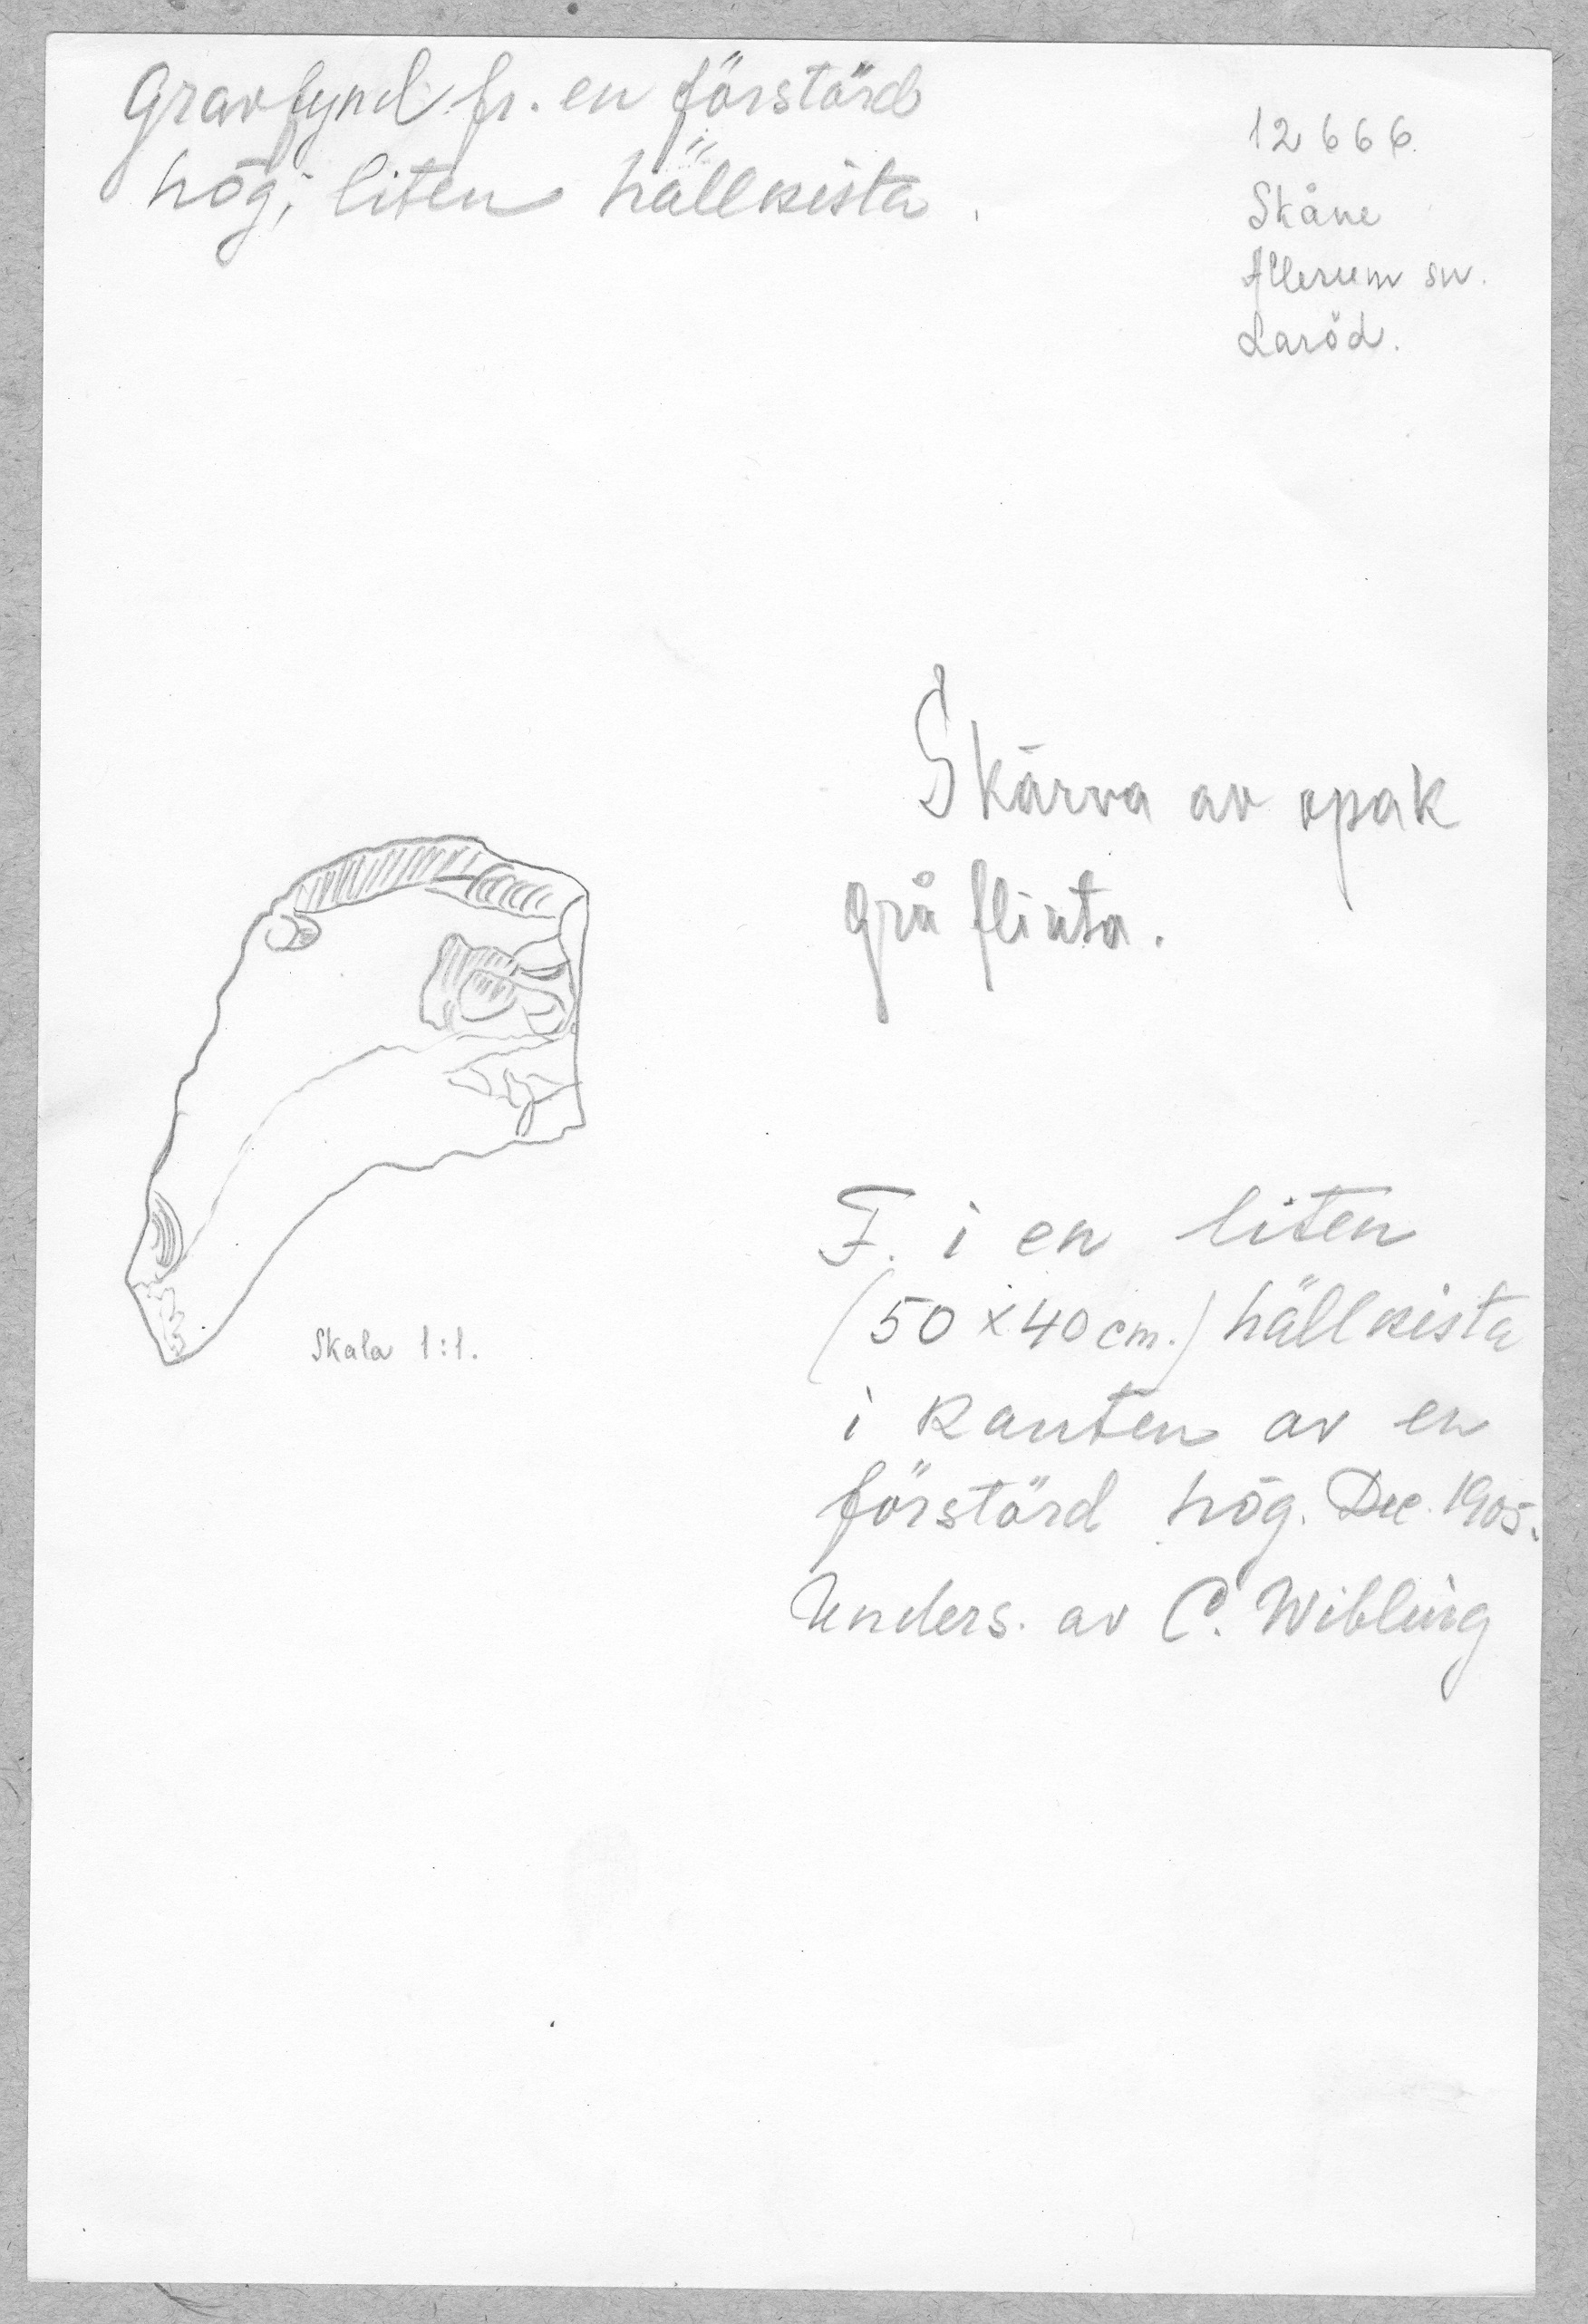 Gravfynd fr. en förstörd
hög; liten hällkista.
12666.
Skåne
Allerum sn.
Laröd.
Skärva av opak
grå flinta.
Skala 1:1.
F. i en liten
(50 x 40 cm.) hällkista
i kanten av en
förstörd hög. Dec. 1905.
Unders. av C. Wibling